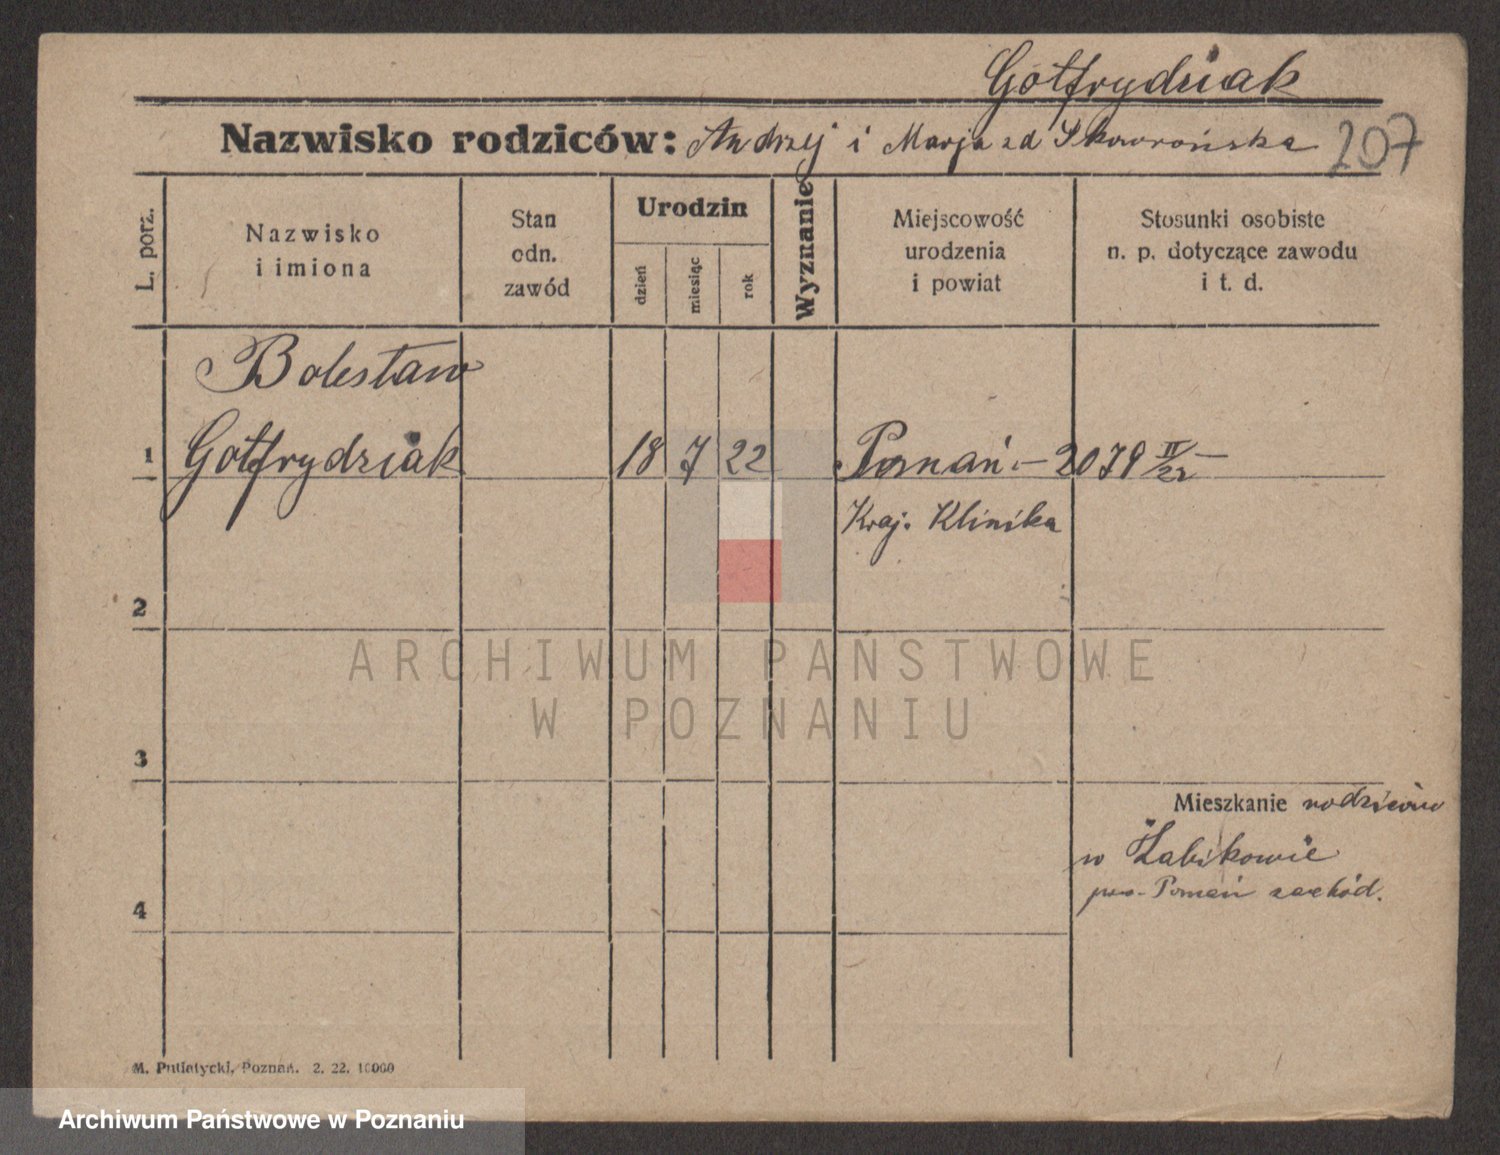 Gotfrydziak
Nazwisko rodziców: Andrzej i Marja zd Skowrońska 207
L. porz.
Nazwisko
i imiona
Stan
odn.
zawód
Urodzin
dzień
miesiąc
rok
Wyznanie
Miejscowość
urodzenia
i powiat
Stosunki osobiste
n. p. dotyczące zawodu
i t. d.
Bolesław
1 Gotfrydziak 18 7 22 Poznań - 2079 II/22 -
Kraj. Klinika
2
ARCHIWUM PAŃSTWOWE
W POZNANIU
3
Mieszkanie rodziców
w Żabikowie
pow. Poznań zachód.
4
M. Putiatycki, Poznań. 2. 22. 10000
Archiwum Państwowe w Poznaniu